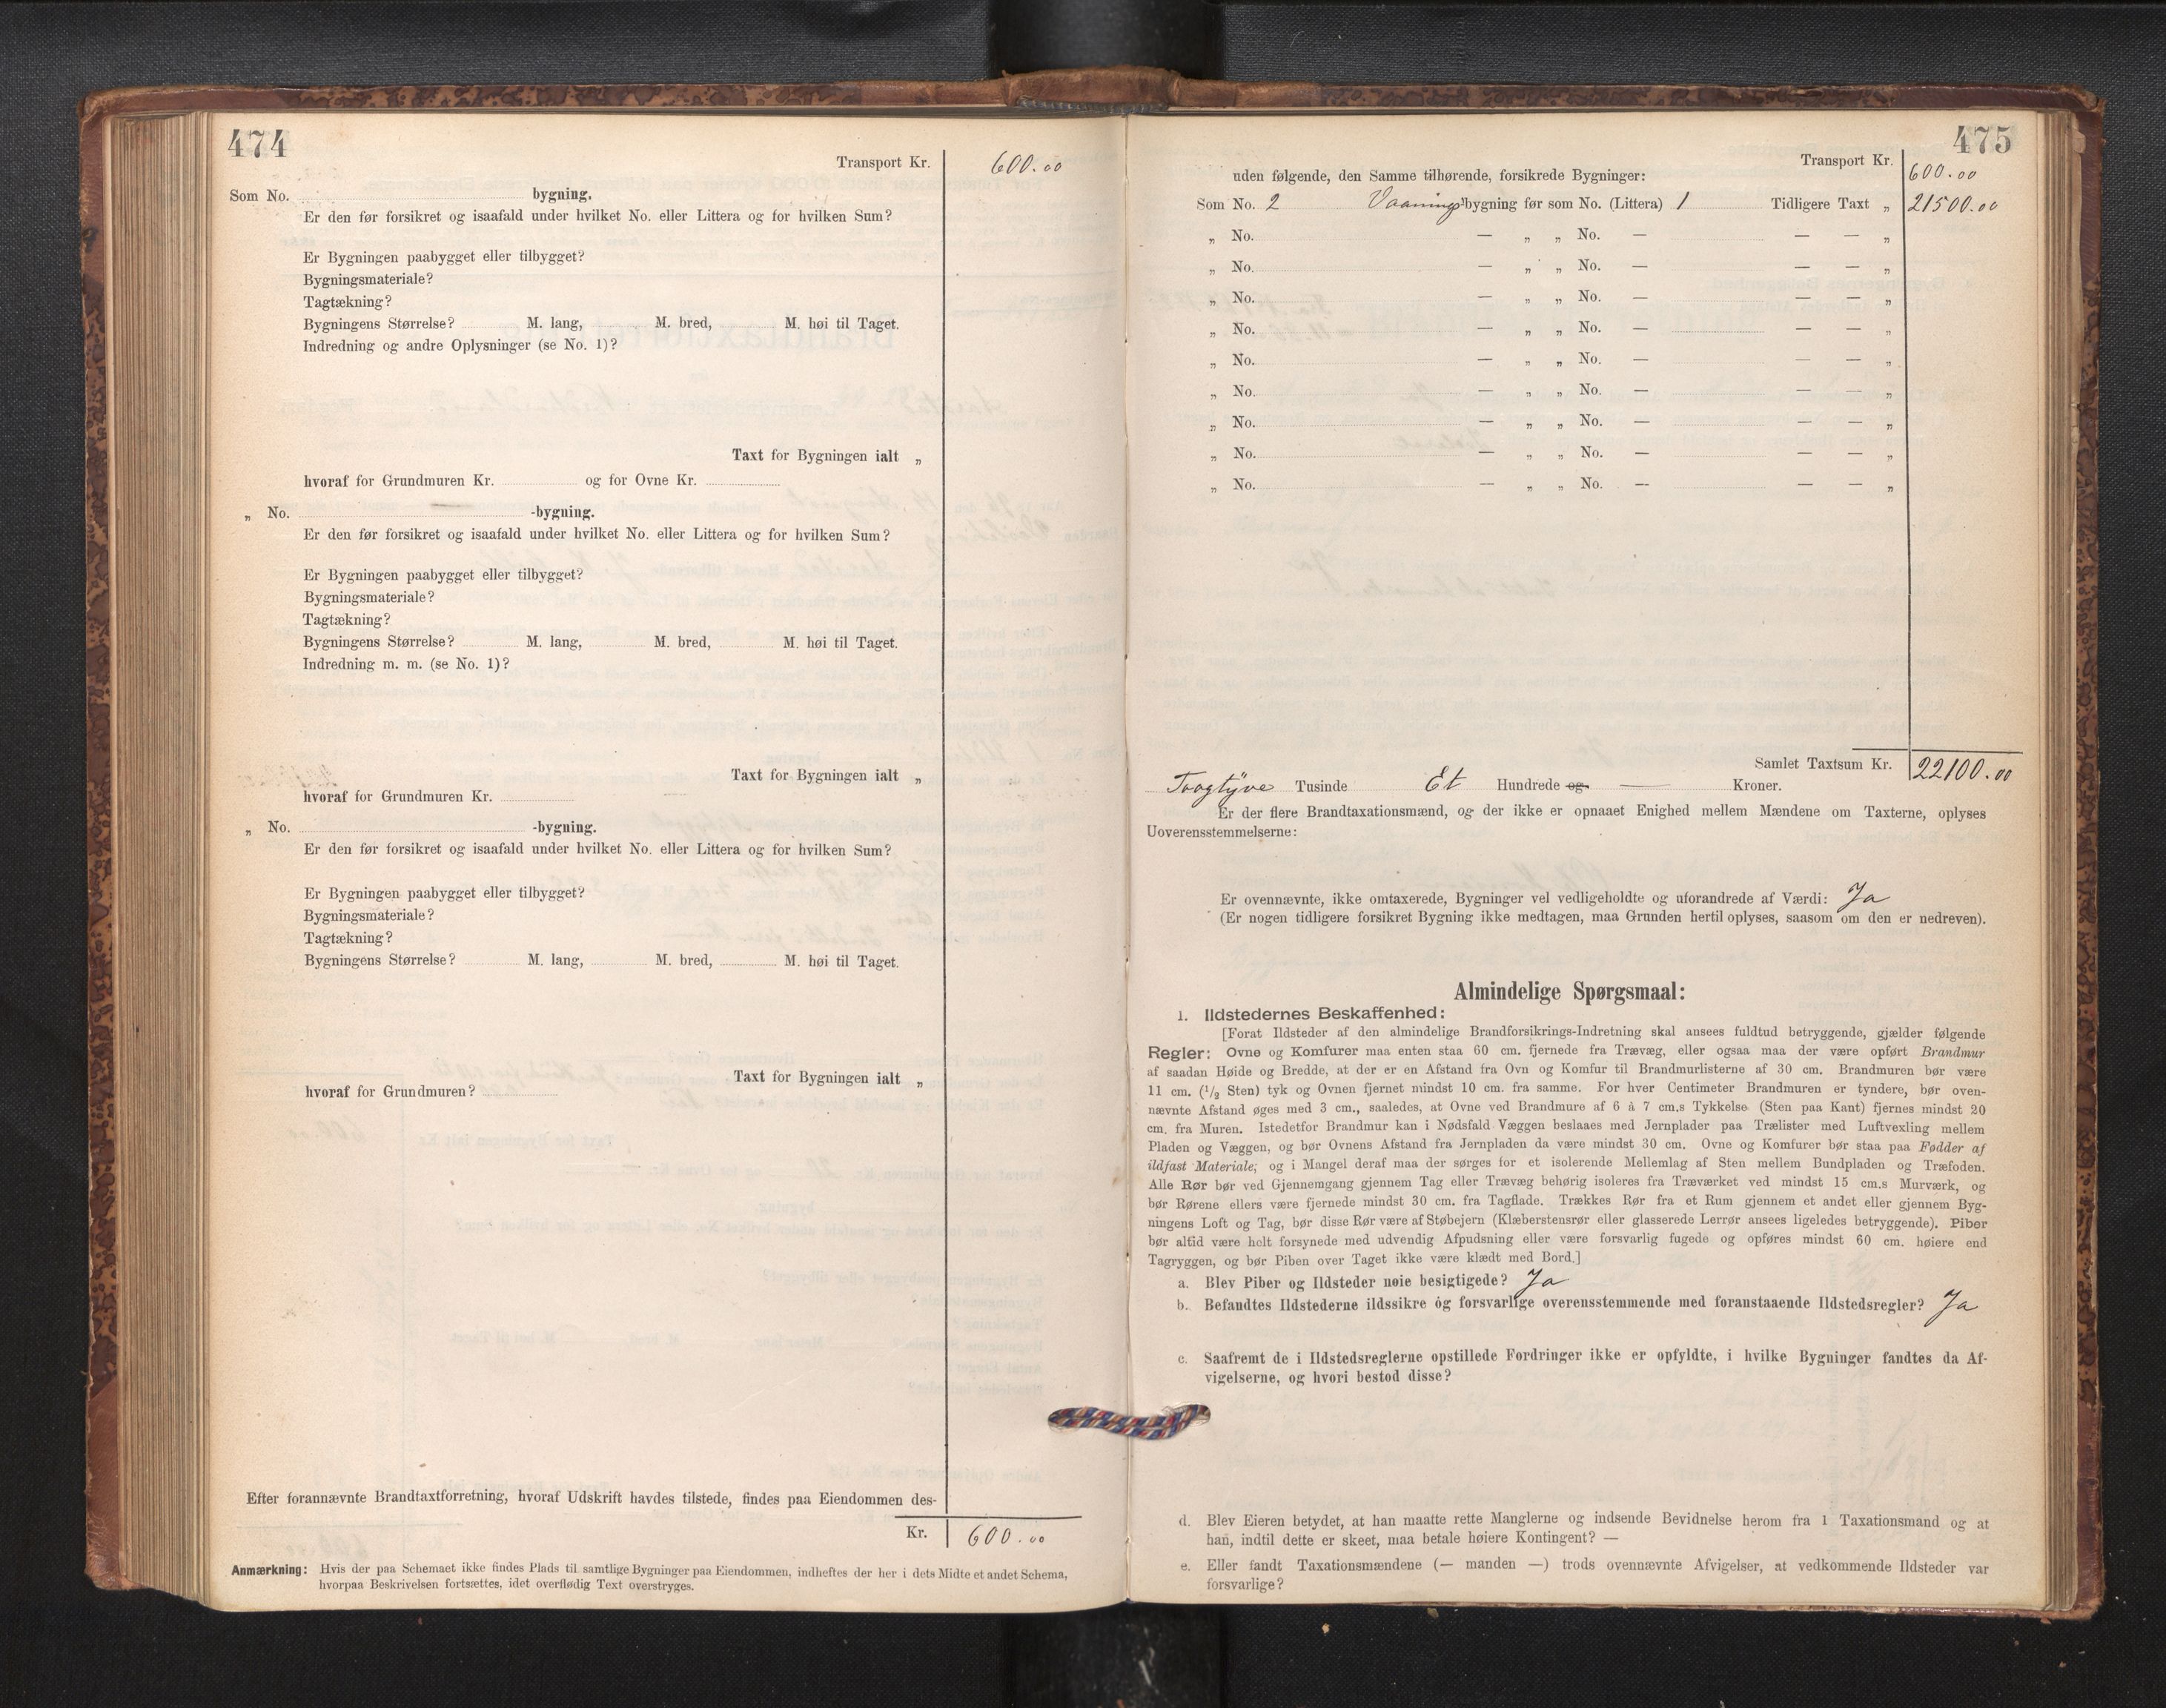 474
Transport Kr. 600.00
Som No. bygning.
Er den før forsikret og isaafald under hvilket No. eller Littera og for hvilken Sum?
Er Bygningen paabygget eller tilbygget?
Bygningsmateriale?
Tagtækning?
Bygningens Størrelse? M. lang, M. bred, M. høi til Taget.
Indredning og andre Oplysninger (se No. 1)?
Taxt for Bygningen ialt „
hvoraf for Grundmuren Kr. og for Ovne Kr.
„ No. -bygning.
Er den før forsikret og isaafald under hvilket No. eller Littera og for hvilken Sum?
Er Bygningen paabygget eller tilbygget?
Bygningsmateriale?
Tagtækning?
Bygningens Størrelse? M. lang, M. bred, M. høi til Taget.
Indredning m. m. (se No. 1)?
Taxt for Bygningen ialt „
hvoraf for Grundmuren Kr.
„ No. -bygning.
Er den før forsikret og isaafald under hvilket No. eller Littera og for hvilken Sum?
Er Bygningen paabygget eller tilbygget?
Bygningsmateriale?
Tagtækning?
Bygningens Størrelse? M. lang, M. bred, M. høi til Taget.
Taxt for Bygningen ialt „
hvoraf for Grundmuren?
Efter forannævnte Brandtaxtforretning, hvoraf Udskrift havdes tilstede, findes paa Eiendommen des-
Kr. 600.00
Anmærkning: Hvis der paa Schemaet ikke findes Plads til samtlige Bygninger paa Eiendommen, indheftes der her i dets Midte et andet Schema,
hvorpaa Beskrivelsen fortsættes, idet overflødig Text overstryges.
475
Transport Kr. 600.00
uden følgende, den Samme tilhørende, forsikrede Bygninger:
Som No. 2 Vaaningsbygning før som No. (Littera) 1 Tidligere Taxt „ 21500.00
„ No. — „ „ No. — — — „
„ No. — „ „ No. — — — „
„ No. — „ „ No. — — — „
„ No. — „ „ No. — — — „
„ No. — „ „ No. — — — „
„ No. — „ „ No. — — — „
„ No. — „ „ No. — — — „
„ No. — „ „ No. — — — „
„ No. — „ „ No. — — — „
Samlet Taxtsum Kr. 22100.00
Toogtyve Tusinde Et Hundrede og — Kroner.
Er der flere Brandtaxationsmænd, og der ikke er opnaaet Enighed mellem Mændene om Taxterne, oplyses
Uoverensstemmelserne:
Er ovennævnte, ikke omtaxerede, Bygninger vel vedligeholdte og uforandrede af Værdi: Ja
(Er nogen tidligere forsikret Bygning ikke medtagen, maa Grunden hertil oplyses, saasom om den er nedreven).
Almindelige Spørgsmaal:
1. Ildstedernes Beskaffenhed:
[Forat Ildsteder af den almindelige Brandforsikrings-Indretning skal ansees fuldtud betryggende, gjælder følgende
Regler: Ovne og Komfurer maa enten staa 60 cm. fjernede fra Trævæg, eller ogsaa maa der være opført Brandmur
af saadan Høide og Bredde, at der er en Afstand fra Ovn og Komfur til Brandmurlisterne af 30 cm. Brandmuren bør være
11 cm. (1/2 Sten) tyk og Ovnen fjernet mindst 10 cm. fra samme. For hver Centimeter Brandmuren er tyndere, bør oven-
nævnte Afstand øges med 3 cm., saaledes, at Ovne ved Brandmure af 6 à 7 cm.s Tykkelse (Sten paa Kant) fjernes mindst 20
cm. fra Muren. Istedetfor Brandmur kan i Nødsfald Væggen beslaaes med Jernplader paa Trælister med Luftvexling mellem
Pladen og Væggen, og bør Ovnens Afstand fra Jernpladen da være mindst 30 cm. Ovne og Komfurer bør staa paa Fødder af
ildfast Materiale; og i Mangel deraf maa der sørges for et isolerende Mellemlag af Sten mellem Bundpladen og Træfoden.
Alle Rør bør ved Gjennemgang gjennem Tag eller Trævæg behørig isoleres fra Træværket ved mindst 15 cm.s Murværk, og
bør Rørene ellers være fjernede mindst 30 cm. fra Tagflade. Trækkes Rør fra et Rum gjennem et andet eller gjennem Byg-
ningens Loft og Tag, bør disse Rør være af Støbejern (Klæberstensrør eller glasserede Lerrør ansees ligeledes betryggende). Piber
bør altid være holt forsynede med udvendig Afpudsning eller være forsvarlig fugede og opføres mindst 60 cm. høiere end
Tagryggen, og bør Piben over Taget ikke være klædt med Bord.]
a. Blev Piber og Ildsteder nøie besigtigede? Ja
b. Befandtes Ildstederne ildssikre og forsvarlige overensstemmende med foranstaaende Ildstedsregler? Ja
c. Saafremt de i Ildstedsreglerne opstillede Fordringer ikke er opfyldte, i hvilke Bygninger fandtes da Af-
vigelserne, og hvori bestod disse?
d. Blev Eieren betydet, at han maatte rette Manglerne og indsende Bevidnelse herom fra 1 Taxationsmand og at
han, indtil dette er skeet, maa betale høiere Kontingent? —
e. Eller fandt Taxationsmændene (— manden —) trods ovennævnte Afvigelser, at vedkommende Ildsteder var
forsvarlige?